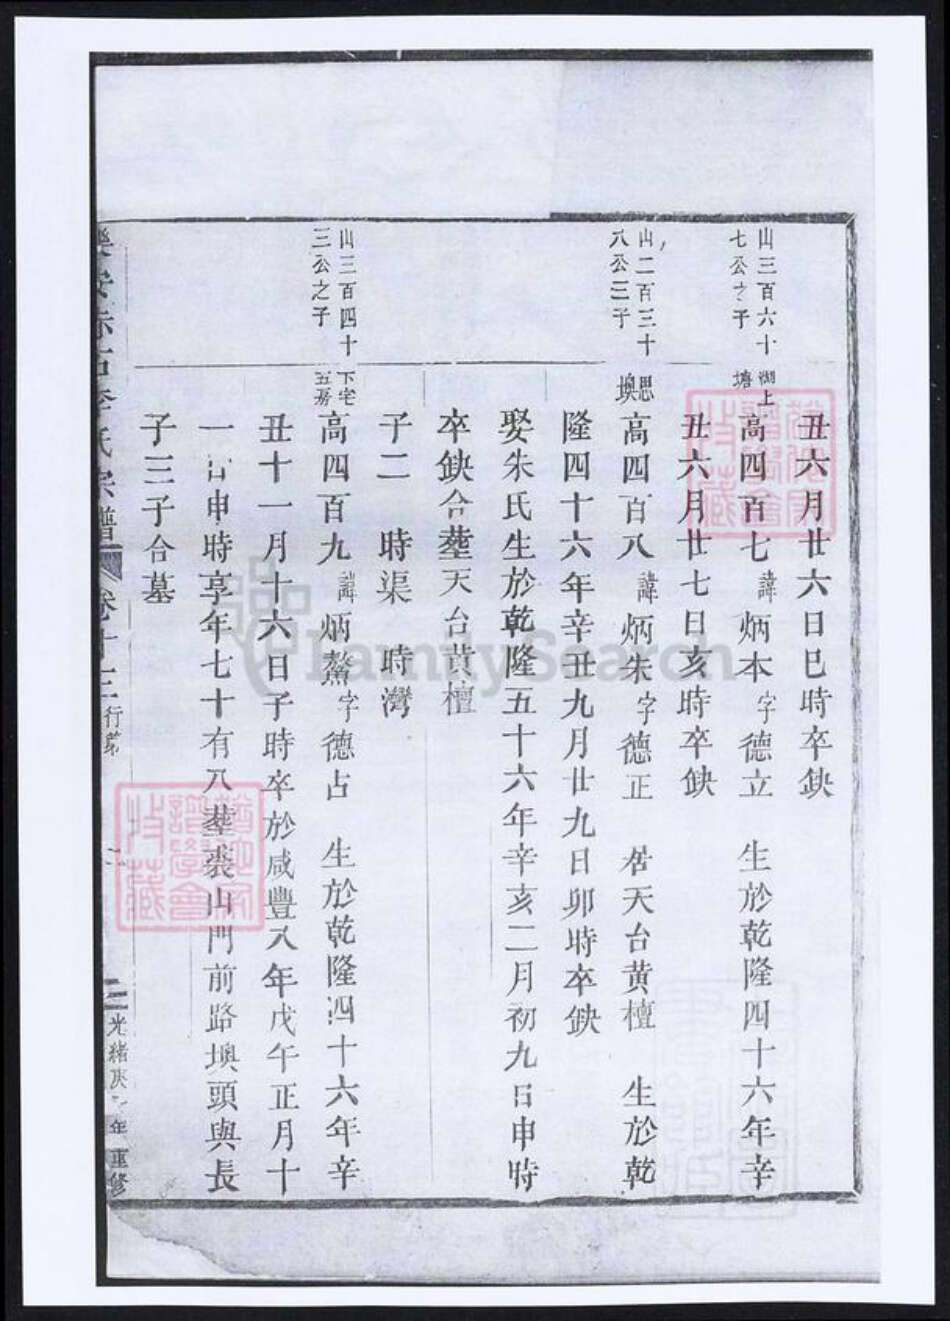 丑六月廿六日巳時卒缺
山三百六十
七公之子
湖上
塘
高四百七 諱 炳本 字 德立 生於乾隆四十六年辛
丑六月廿七日亥時卒缺
山二百三十
八公三子
思
墺
高四百八 諱 炳朱 字 德正 居天台黄檀 生於乾
隆四十六年辛丑九月廿九日卯時卒缺
娶朱氏生於乾隆五十六年辛亥二月初九日申時
卒缺合塟天台黄檀
子二 時渠 時灣
山三百四十
三公之子
下宅
五房
高四百九 諱 炳鰲 字 德占 生於乾隆四十六年辛
丑十一月十六日子時卒於咸豐八年戊午正月十
一日申時享年七十有八塟裘山門前路墺頭與長
子三子合墓
安 李氏宗譜 卷十三 行第
光緒庚 年重修
FamilySearch